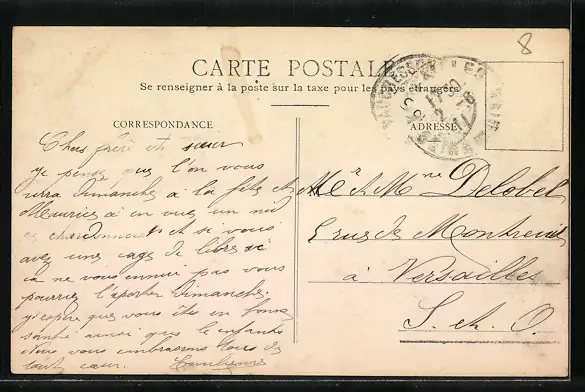 8
CARTE POSTALE
Se renseigner à la poste sur la taxe pour les pays étrangers
CORRESPONDANCE
ADRESSE
Chers frère et sœur
je pense que l'on vous
verra Dimanche a la fête et
Maurice a en vue un nid
de chardonnerets et si vous
avez une cage de libre si
ca ne vous ennui pas vous
pourriez l'aporter Dimanche.
J'espère que vous êtes en bonne
santé ainsi que le enfants
Nous vous embrassons tous de
tout cœur.
Mr & Mme Delobel
5 rue de Montreuil
à Versailles
S. et. O.